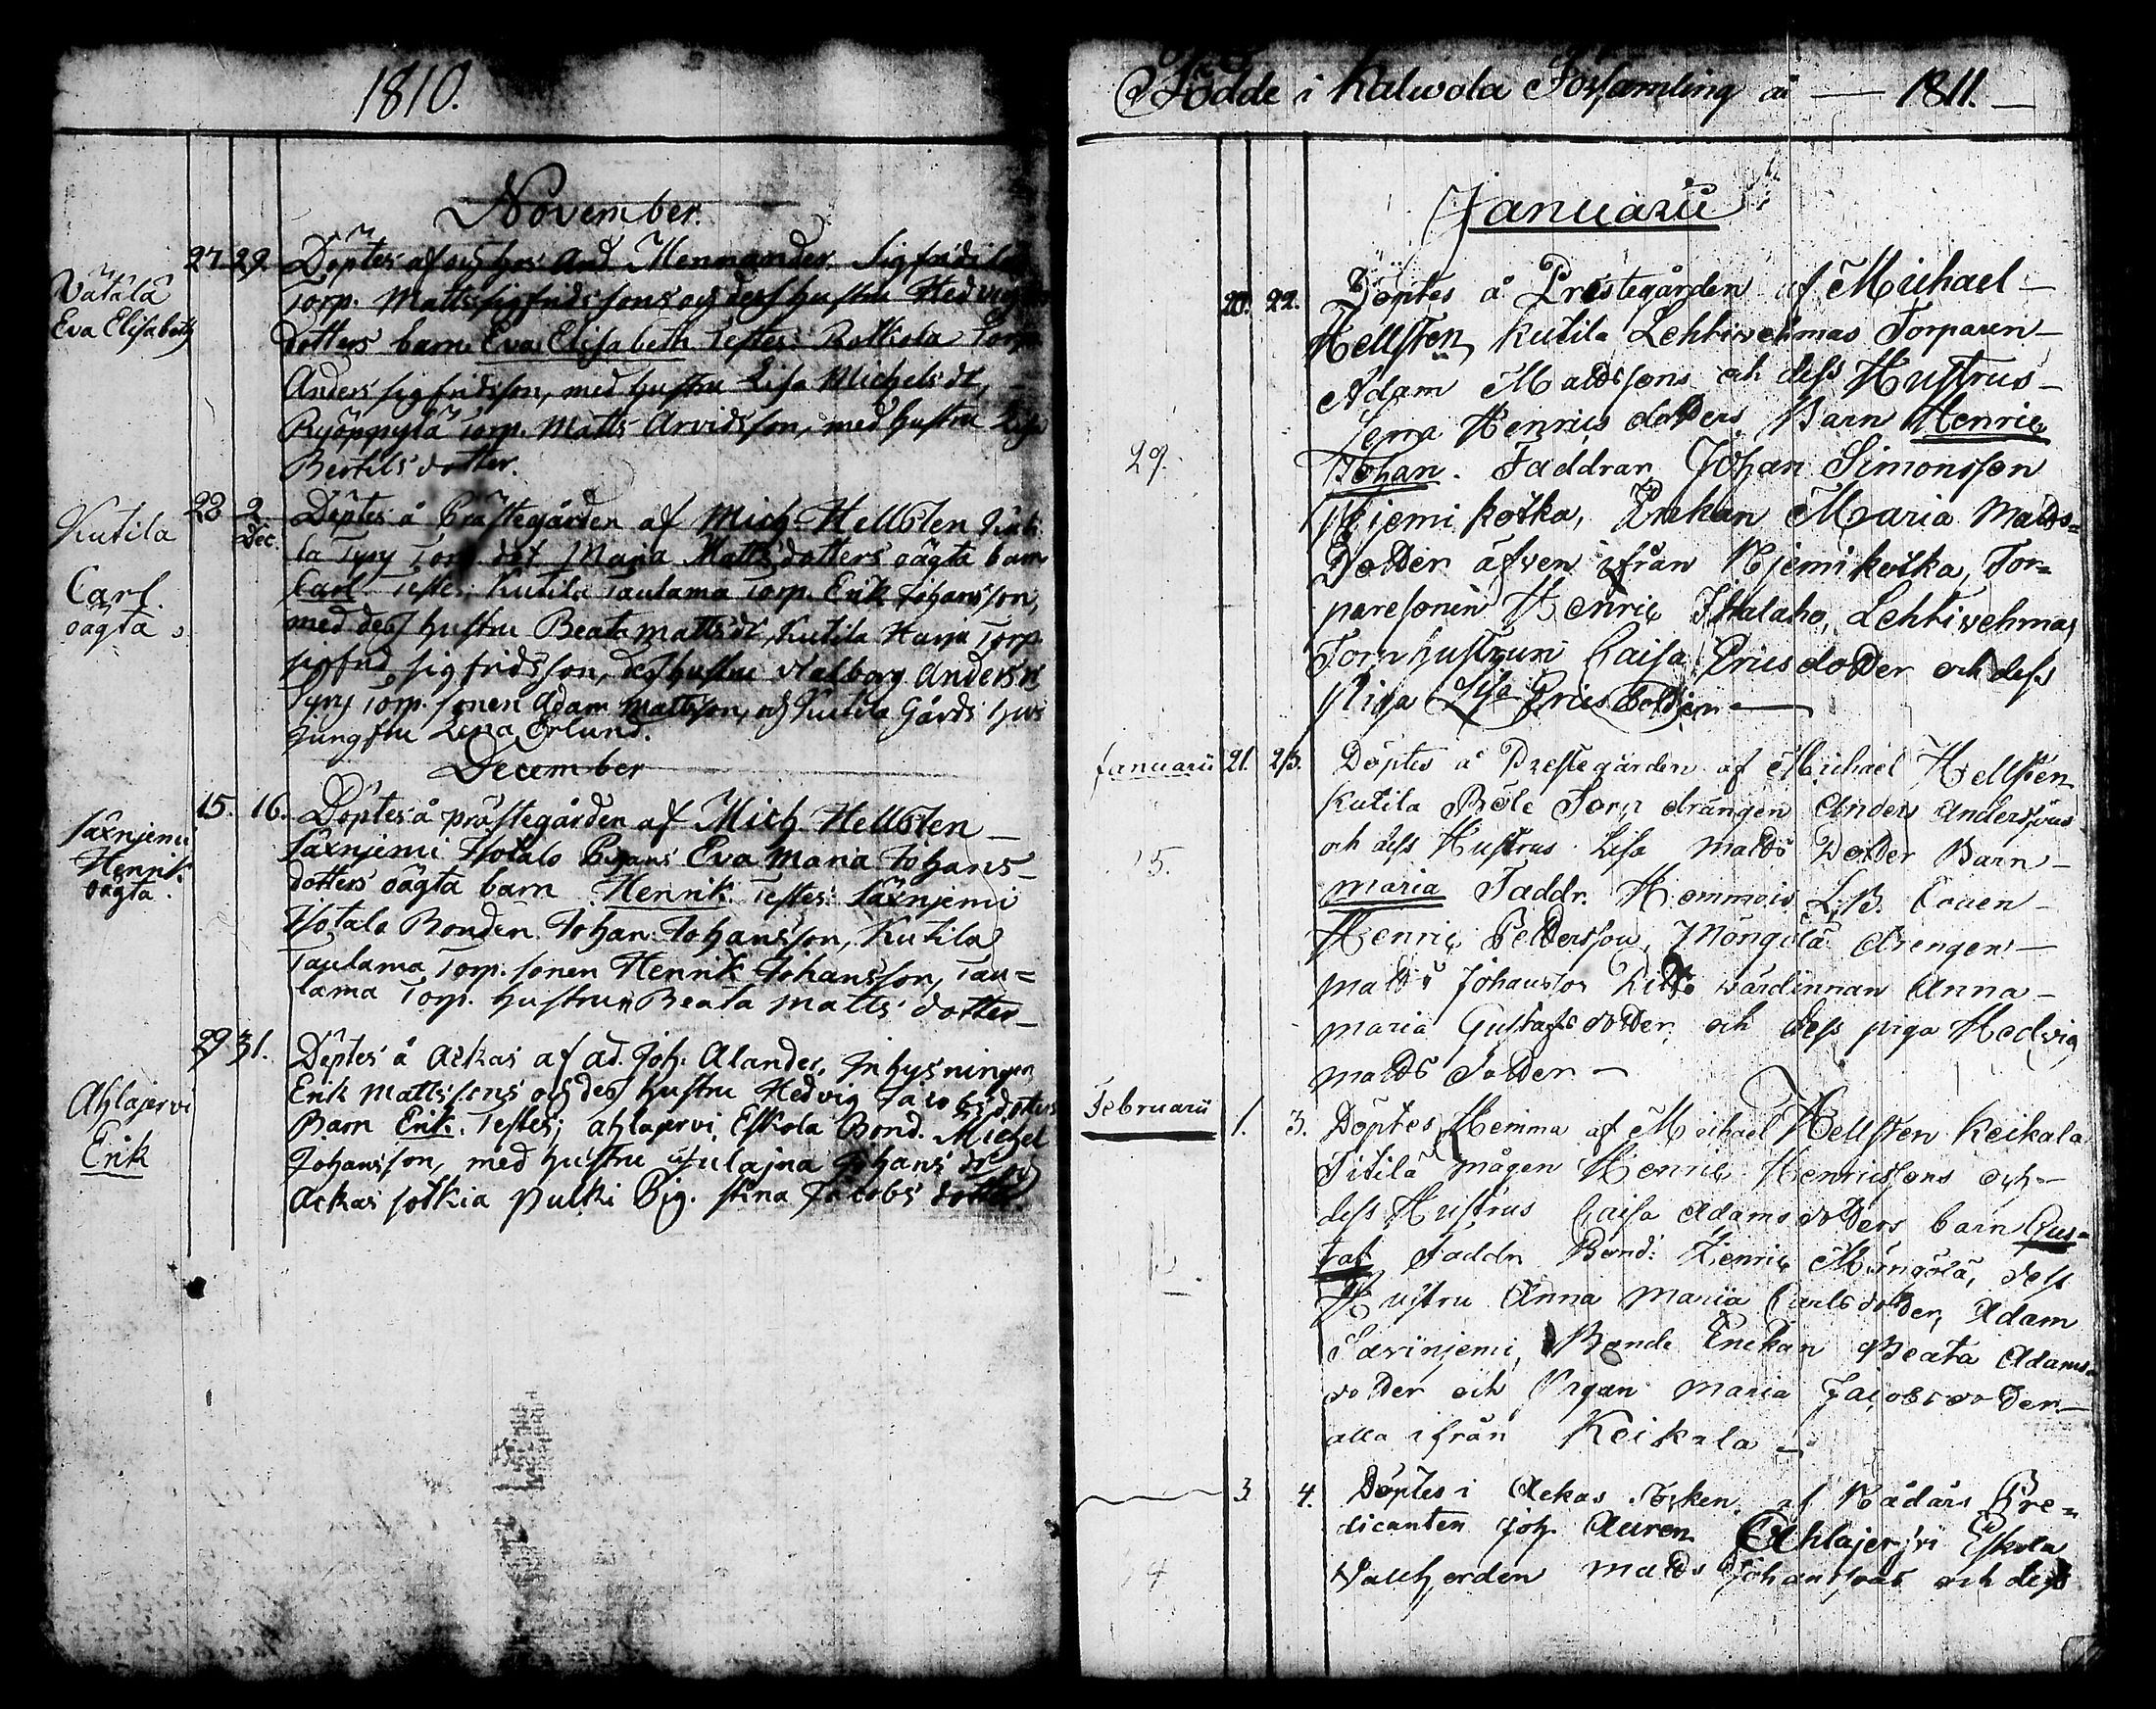 1810.
November.
Vätälä
Eva Elisabeth
27. 29. Döptes af och hos And Mennander. Sigfridila
Torp. Matts Sigfridssons och dess hustru Hedvig
dotters barn Eva Elisabeth Testes: Rotkola Torp
Anders Sigfridsson, med hustru Lisa Michelsdr,
Ryöppylä Torp. Matts Arvidsson, med hustru Lisa
Bertilsdotter.
Kutila
Carl
oägta
28 2 Dec.
Döptes å Prästegården af Mich Hellsten Kuti
la Tyry Torp. dot Maria Mattsdotters oägta barn
Carl Testes: Kutila Taulama Torp. Erik Johansson,
med dess hustru Beata Mattsdr, Kutila Harju Torp
Sigfrid Sigfridsson, dess hustru Valborg Andersdr
Tyry Torp. sonen Adam Mattsson, och Kutila Gårds hus
jungfru Lena Erlund.
December
Säxnjemi
Henrik
oägta.
15. 16. Döptes å prästegården af Mich Hellsten
Säxnjemi Isotalo Pigans Eva Maria Johans-
dotters oägta barn Henrik. Testes: Säxnjemi
Isotalo Bonden Johan Johansson, Kutila
Taulama Torp. sonen Henrik Johansson, Tau=
lama Torp. hustrun Beata Matts dotter
Ahlajervi
Erik
29 31. Döptes å Ackas af ad. Joh: Alander, Inhysningen
Erik Mattssons och dess hustru Hedvig Jacobsdotters
Barn Erik. Testes; Ahlajervi Eskola Bond. Michel
Johansson, med hustru Julajna Johans dr och
Ackas Sotkia Pulki Pig. Stina Jacobs dotter.
Födde i Kalwola Församling år — 1811. —
Januarii
20. 22. Döptes å Prestegården af Michael
Hellsten, Kutila Lehtivehmas Torparen
Adam Mattssons och dess Hustrus
Lena Henricsdotters Barn Henric
29.
Johan. Faddrar Johan Simonsson
Njemikotka, Enkan Maria Matts=
Dotter äfven ifrån Njemikotka, Tor=
paresonen Henric Iltalaho, Lehtivehmas
Torphustrun Caisa Ericsdotter och dess
Piga Lisa Ericsdotter
Januarii 21. 23. Döptes å Prestegården af Michael Hellsten
Kutila Böle Torp drängen Anders Anderssons
och dess Hustrus Lisa Matts Dotter Barn
15.
Maria Faddr. Hemmois L.B. Couen
Henric Pettersson, Möngölä drengen
Matts Johansson värdinnan Anna
Maria Gustafsdotter och dess piga Hedvig
Matts Dotter
Februarii 1. 3. Döptes Hemma af Michael Hellsten Keikala
Titilä mågen Henric Henricssons och
dess Hustrus Caisa Adamsdotters barn Gus=
taf Faddr Bond: Henric Möngölä, dess
Hustru Anna Maria Carlsdotter, Adam
Särinjemi, Bonde Enckan Beata Adams=
dotter och Pigan Maria Jacobsdotter
alla ifrån Keikala
3 4. Döptes i Ackas Socken af Nådårs Pre=
dicanten Joh. Auren Ahlajerfvi Eskola
4
Vallherden Matts Johanssons och dess